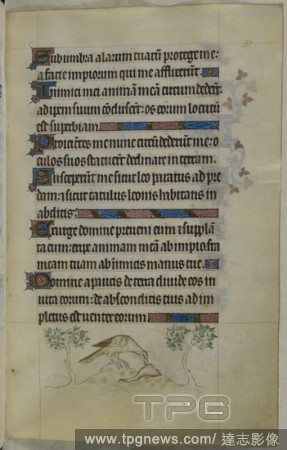 Sub umbra alarum tuarum protege me:
a facie impiorum qui me afflixerunt.
Inimici mei animam meam circumdederunt
adipem suum concluserunt: os eorum locutum
est superbiam
Proicientes me nunc circumdederunt me: o
culos suos statuerunt declinare in terram.
Susceperunt me sicut leo paratus ad pre
dam: et sicut catulus leonis habitans in
abditis.
Exurge domine preveni eum et supplan
ta eum: eripe animam meam ab impio fra
meam tuam ab inimicis manus tue.
Domine a paucis de terra divide eos in
vita eorum: de absconditis tuis ad im
pletus est venter eorum
TPG
www.tpgnews.com/ 達志影像